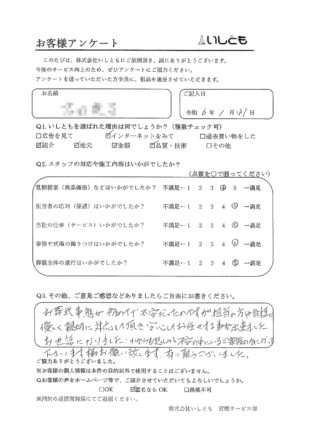 お客様アンケート
いしとも
このたびは、株式会社いしともにご依頼頂き、誠にありがとうございます。
今後のサービス向上のため、ぜひアンケートにご協力ください。
アンケートを送っていただいた方全員に、粗品を進呈させていただきます。
お名前
ご記入日
令和 6年 1月31日
Q1.いしともを選ばれた理由は何でしょうか?(複数チェック可)
□広告を見て ☑インターネットをみて □過去買い物をした
☑紹介 ☑地元 ☑金額 ☑品質・技術 □その他
Q2.スタッフの対応や施工内容はいかがでしたか?
(点数を○で囲ってください)
見積提案(商品価格)などはいかがでしたか? 不満足←1 2 3 ④ 5 →満足
担当者の応対(接遇)はいかがでしたか? 不満足←1 2 3 4 ⑤ →満足
当社の仕事(サービス)いかがでしたか? 不満足←1 2 3 4 ⑤ →満足
祭壇や式場の飾りつけはいかがでしたか? 不満足←1 2 3 4 ⑤ →満足
葬儀全体の進行はいかがでしたか? 不満足←1 2 3 4 ⑤ →満足
Q3.その他、ご意見ご感想などありましたらご自由にお書きください。
お葬式事態が初めてで不安だったのですが担当の方が皆様
優しく親切に対応して頂き安心しお任せする事が出来ました
お世話になりました
お願い致します 有り難うございました。
ご協力ありがとうございました。
※お客様の個人情報は本件の目的以外で使用することはございません。
Qお客様の声をホームページ等で、ご紹介させていただいてもよろしいでしょうか。
□OK ☑匿名なら OK □掲載不可
※同封の返信用封筒にてご投函ください。
株式会社いしとも 管理サービス部